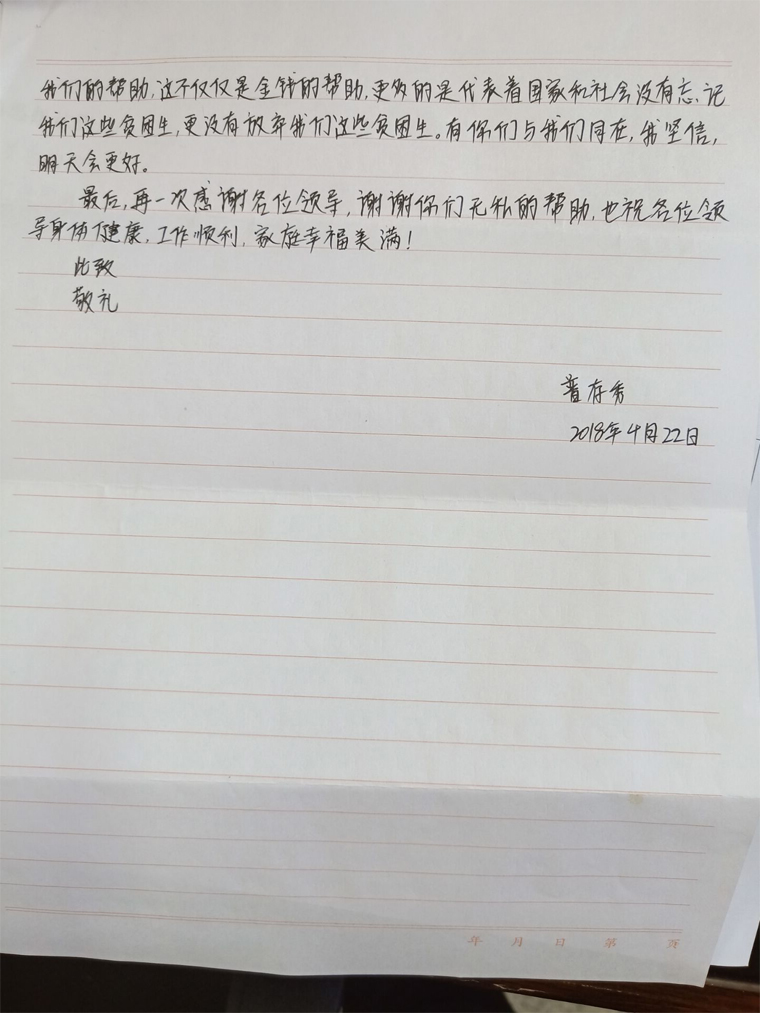 我们的帮助,这不仅仅是金钱的帮助,更多的是代表着国家和社会没有忘记
我们这些贫困生,更没有放弃我们这些贫困生。有你们与我们同在,我坚信,
明天会更好。
最后,再一次感谢各位领导,谢谢你们无私的帮助,也祝各位领
导身体健康,工作顺利,家庭幸福美满!
此致
敬礼
普存秀
2018年4月22日
年 月 日 第 页